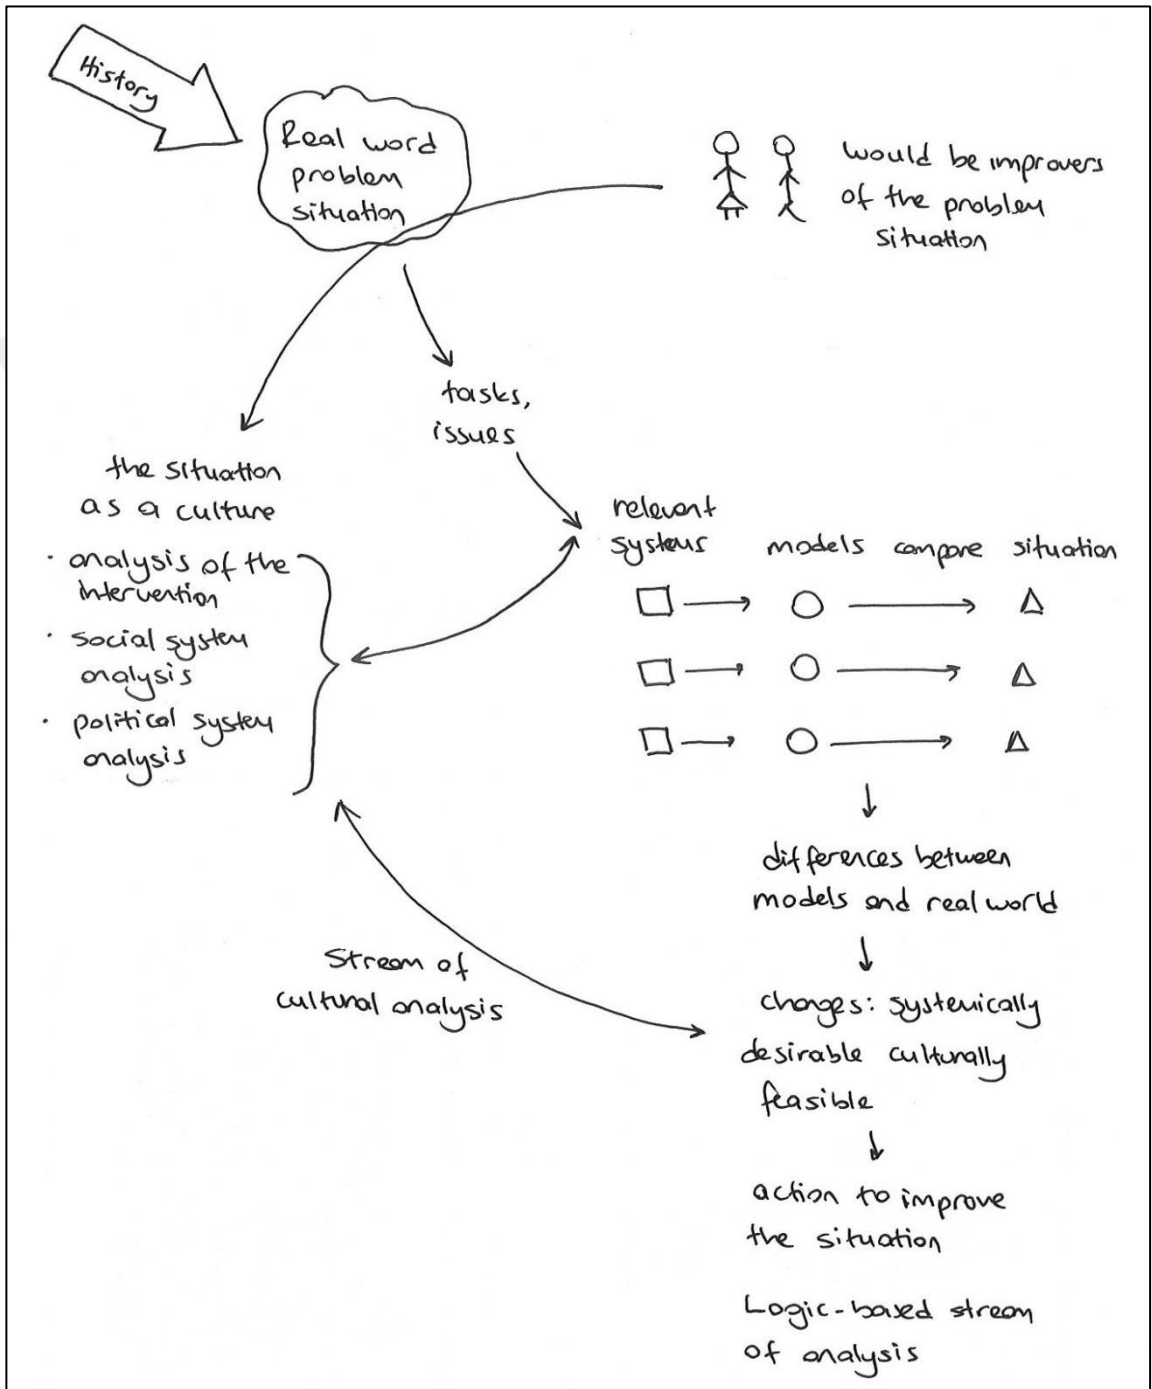 History
Real word
problem
situation
would be improvers
of the problem
situation
tasks,
issues
the situation
as a culture
· analysis of the
intervention
· social system
analysis
· political system
analysis
relevant
systems
models compare situation
differences between
models and real world
Stream of
cultural analysis
changes: systemically
desirable culturally
feasible
action to improve
the situation
Logic-based stream
of analysis